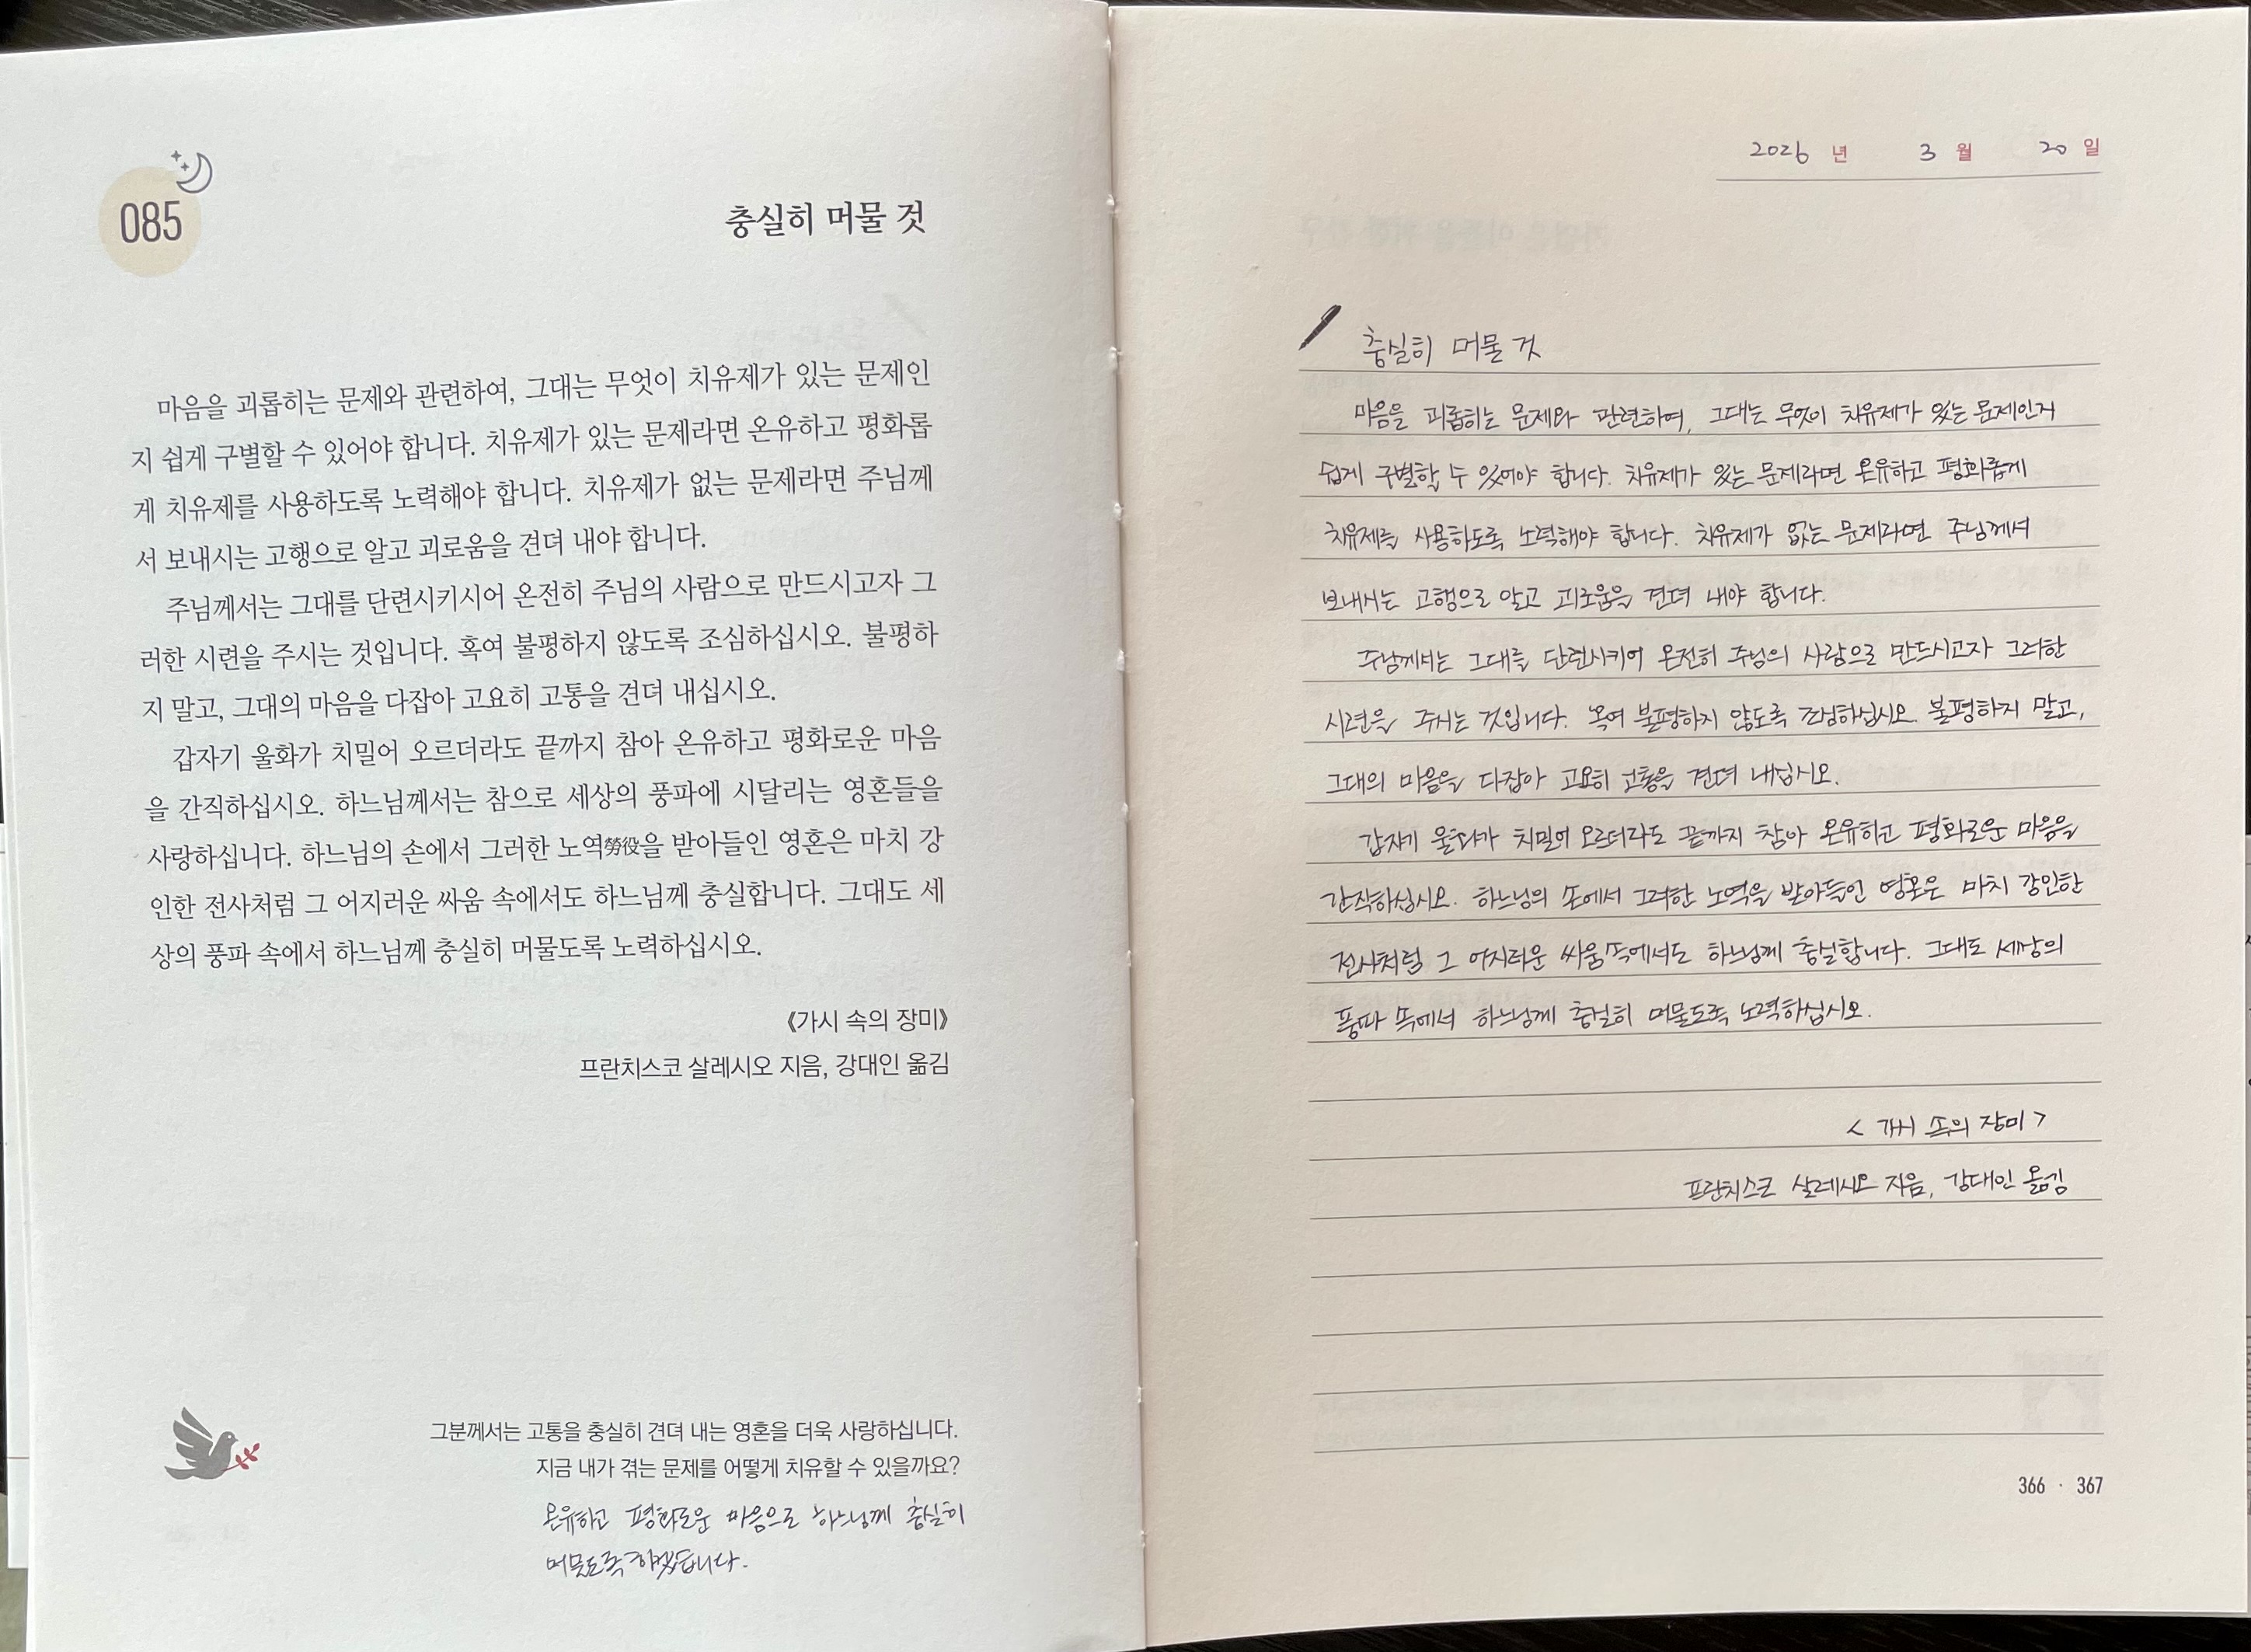 085
충실히 머물 것
마음을 괴롭히는 문제와 관련하여, 그대는 무엇이 치유제가 있는 문제인
지 쉽게 구별할 수 있어야 합니다. 치유제가 있는 문제라면 온유하고 평화롭
게 치유제를 사용하도록 노력해야 합니다. 치유제가 없는 문제라면 주님께
서 보내시는 고행으로 알고 괴로움을 견뎌 내야 합니다.
주님께서는 그대를 단련시키시어 온전히 주님의 사람으로 만드시고자 그
러한 시련을 주시는 것입니다. 혹여 불평하지 않도록 조심하십시오. 불평하
지 말고, 그대의 마음을 다잡아 고요히 고통을 견뎌 내십시오.
갑자기 울화가 치밀어 오르더라도 끝까지 참아 온유하고 평화로운 마음
을 간직하십시오. 하느님께서는 참으로 세상의 풍파에 시달리는 영혼들을
사랑하십니다. 하느님의 손에서 그러한 노역勞役을 받아들인 영혼은 마치 강
인한 전사처럼 그 어지러운 싸움 속에서도 하느님께 충실합니다. 그대도 세
상의 풍파 속에서 하느님께 충실히 머물도록 노력하십시오.
《가시 속의 장미》
프란치스코 살레시오 지음, 강대인 옮김
그분께서는 고통을 충실히 견뎌 내는 영혼을 더욱 사랑하십니다.
지금 내가 겪는 문제를 어떻게 치유할 수 있을까요?
온유하고 평화로운 마음으로 하느님께 충실히
머물도록 하겠습니다.
2026 년 3 월 20 일
충실히 머물 것
마음을 괴롭히는 문제와 관련하여, 그대는 무엇이 치유제가 있는 문제인지
쉽게 구별할 수 있어야 합니다. 치유제가 있는 문제라면 온유하고 평화롭게
치유제를 사용하도록 노력해야 합니다. 치유제가 없는 문제라면 주님께서
보내시는 고행으로 알고 괴로움을 견뎌 내야 합니다.
주님께서는 그대를 단련시키어 온전히 주님의 사람으로 만드시고자 그러한
시련을 주시는 것입니다. 혹여 불평하지 않도록 조심하십시오. 불평하지 말고,
그대의 마음을 다잡아 고요히 고통을 견뎌 내십시오.
갑자기 울화가 치밀어 오르더라도 끝까지 참아 온유하고 평화로운 마음을
간직하십시오. 하느님의 손에서 그러한 노역을 받아들인 영혼은 마치 강인한
전사처럼 그 어지러운 싸움 속에서도 하느님께 충실합니다. 그대도 세상의
풍파 속에서 하느님께 충실히 머물도록 노력하십시오.
< 가시 속의 장미 >
프란치스코 살레시오 지음, 강대인 옮김
366 · 367